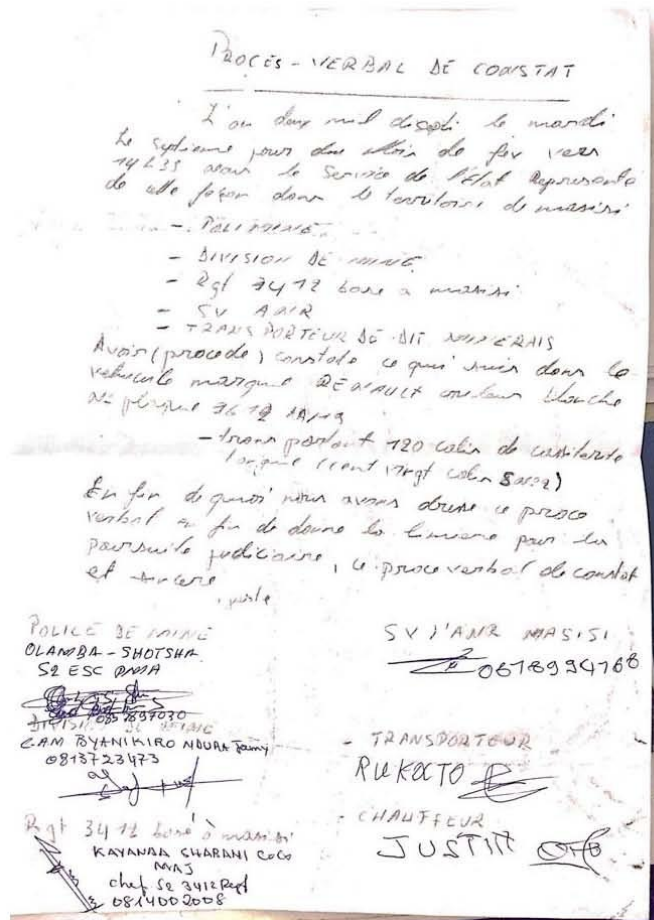 PROCES-VERBAL DE CONSTAT
L'an deux mil disepti le mardi
Le septieme jour du Mois de fev vers
14h35 avons le Service de l'Etat Represente
de elle façon dans le territoire de masisi
- POLI MINE
- DIVISION DE MINE
- Rgt 3412 base a masisi
- SV ANR
- TRANSPORTEUR DE DIT MINERAIS
Avoir (procede) constate ce qui suis dans le
vehicule marque RENAULT couleur blanche
N° plaque 3612
- transportant 120 colis de cassiterite
(cent vingt colis)
En fin de quoi nous avons dresse ce proce
verbal a fin de donne la lumiere pour la
poursuite judiciaire, ce proce verbal de constat
et sincere
juste
POLICE DE MINE
OLAMBA-SHOTSHA
S2 ESC PMA
DIVISION DE MINE
CAM BYANIKIRO NDURA Jamy
0813723473
Rgt 3412 basé à masisi
KAYANDA SHABANI COCO
MAJ
chef S2 3412 Regt
0814002008
SV L'ANR MASISI
0818994168
- TRANSPORTEUR
RUKOCTO
- CHAUFFEUR
JUSTIN